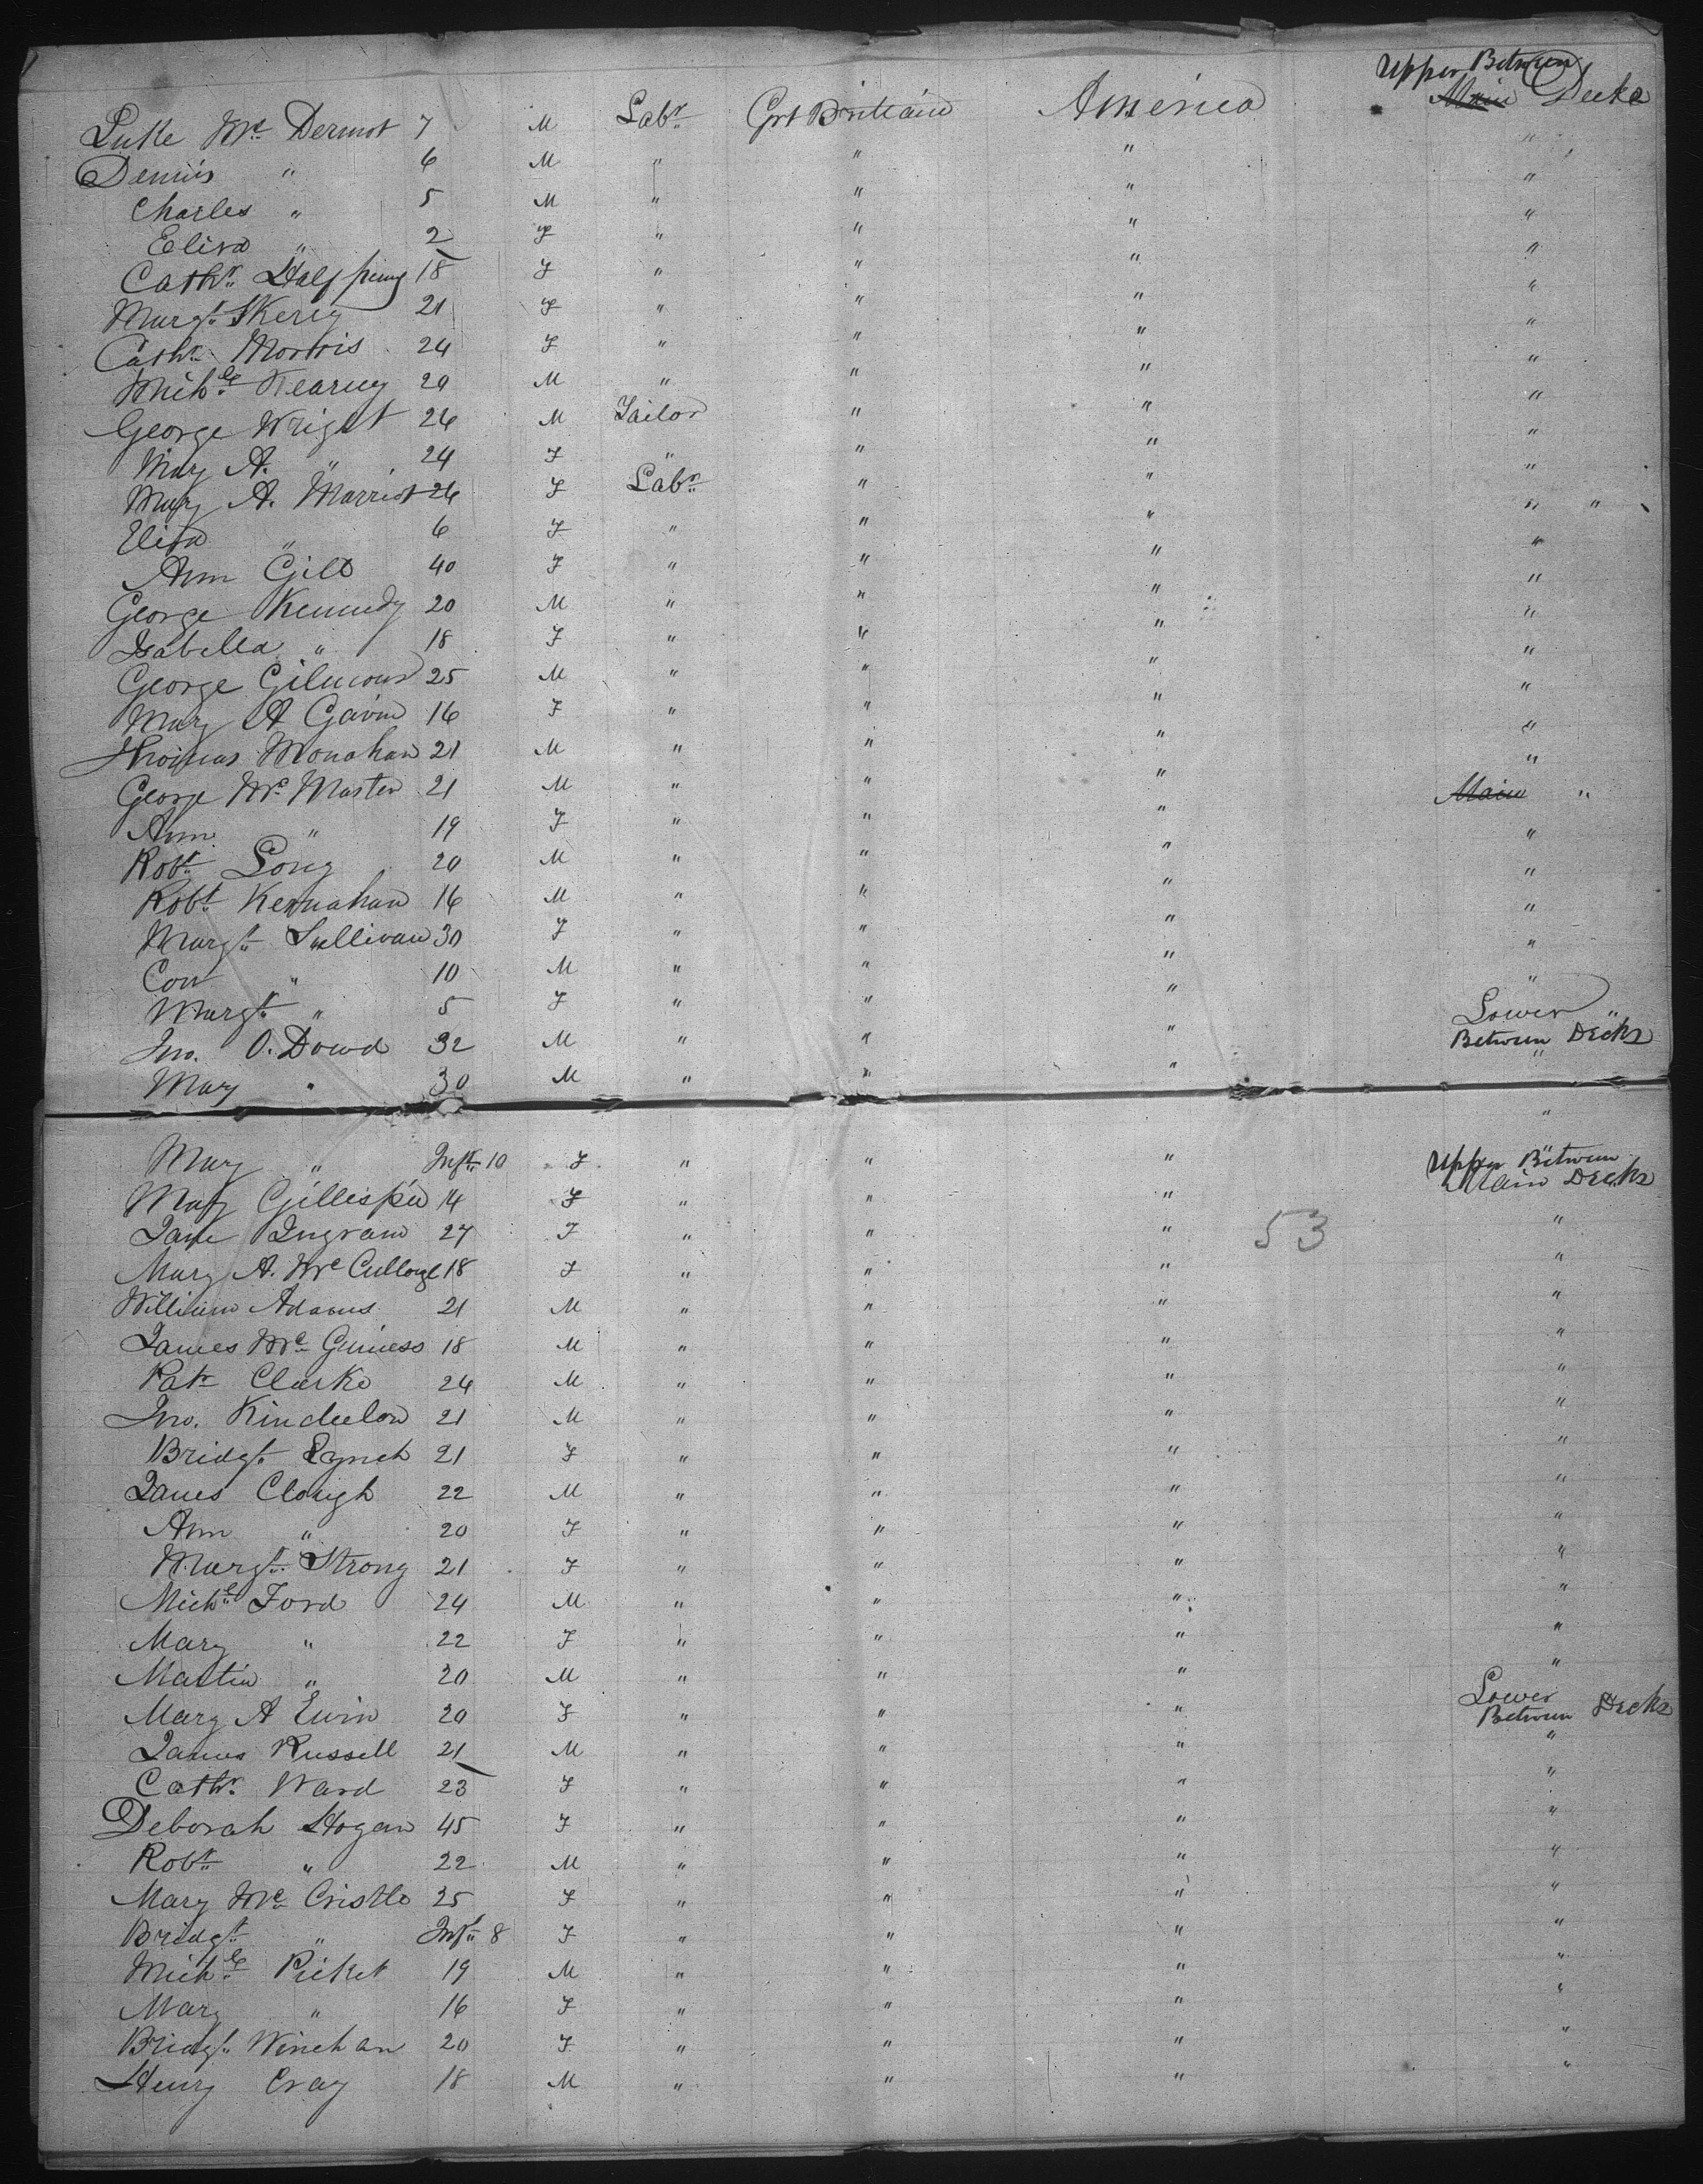 Upper Between
Luke Mc Dermot 7 M Labr. Grt Brittain America Main Decks
Dennis " 6 M " " " "
Charles " 5 M " " " "
Eliza " 2 F " " " "
Cathr. Halfpenny 18 F " " " "
Margt. Skerry 21 F " " " "
Cathr. Morris 24 F " " " "
Michl. Kearney 20 M " " " "
George Wright 26 M Tailor " " "
Mary A. " 24 F " " " "
Mary A. Marriot 26 F Labr. " " "
Eliza " 6 F " " " " "
Ann Gill 40 F " " " "
George Kennedy 20 M " " " "
Isabella " 18 F " " " "
George Gilmour 25 M " " " "
Mary A Gavin 16 F " " " "
Thomas Monahan 21 M " " " "
George Mc Master 21 M " " " Main "
Ann " 19 F " " " "
Robt. Long 20 M " " " "
Robt. Kernahan 16 M " " " "
Margt. Sullivan 30 F " " " "
Con " 10 M " " " "
Margt. " 5 F " " " Lower "
Jno. O. Dowd 32 M " " " Between Decks
Mary " 30 M " " " "
Mary " Inft. 10 F " " " Upper Between
Mary Gillespie 14 F " " " Main Decks
Jane Ingram 27 F " " " 53 "
Mary A. Mc Cullough 18 F " " " "
William Adams 21 M " " " "
James Mc Guiness 18 M " " " "
Patk Clarke 24 M " " " "
Jno. Kindelon 21 M " " " "
Bridgt. Lynch 21 F " " " "
James Clough 22 M " " " "
Ann " 20 F " " " "
Margt. Strong 21 F " " " "
Michl. Ford 24 M " " " "
Mary " 22 F " " " "
Martin " 20 M " " " Lower
Mary A Ewin 20 F " " " Between Decks
James Russell 21 M " " " "
Cathr. Ward 23 F " " " "
Deborah Hogan 45 F " " " "
Robt. " 22 M " " " "
Mary Mc Cristle 25 F " " " "
Bridgt. " Inft. 8 F " " " "
Michl. Picket 19 M " " " "
Mary " 16 F " " " "
Bridgt. Winehan 20 F " " " "
Henry Cray 18 M " " " "